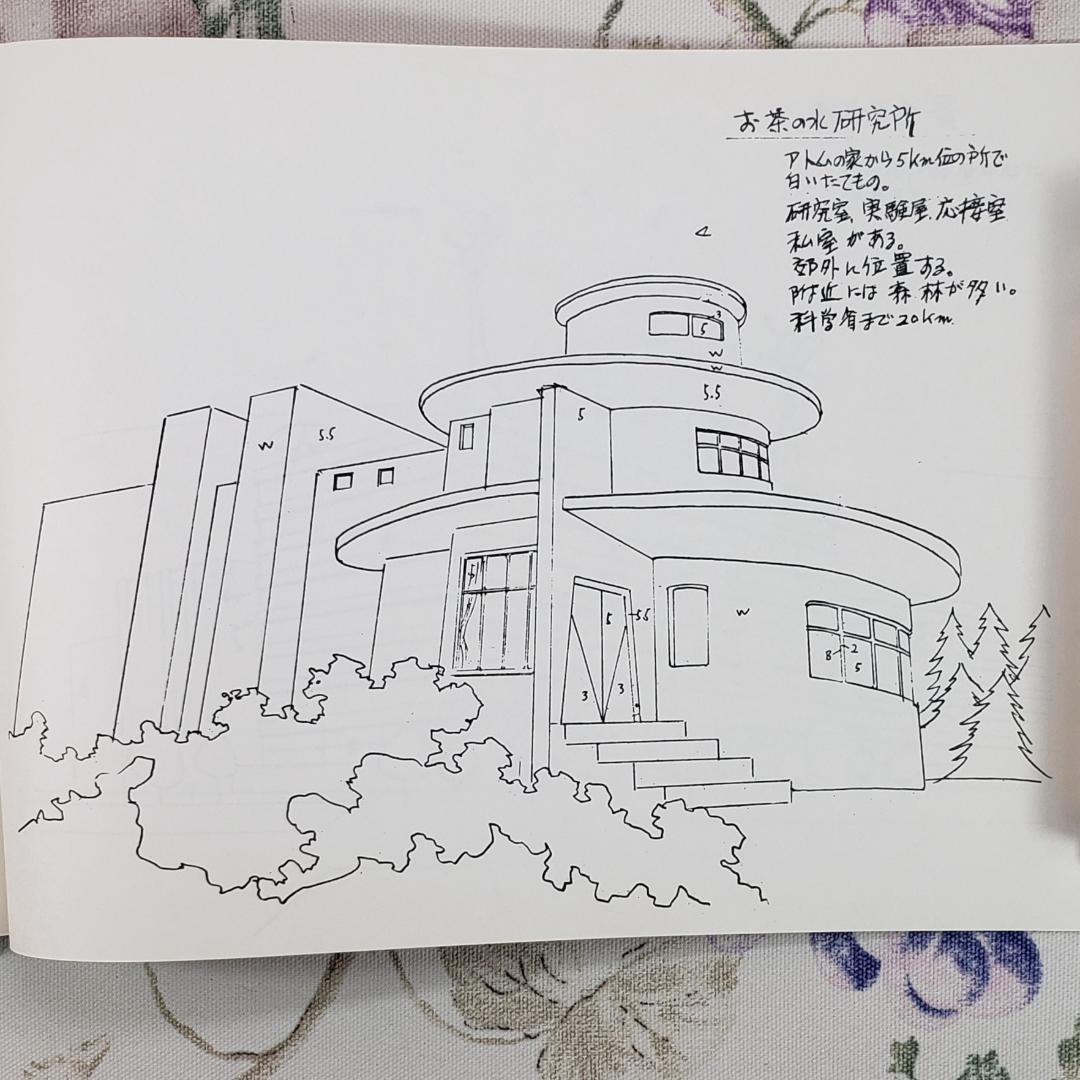 お茶の水研究所
アトムの家から5km位の所で
白いたてもの。
研究室、実験屋、応接室
私室がある。
郊外に位置する。
附近には森林が多い。
科学省まで20km.
3
5
W
W
5.5
5
W
5.5
5
5.5
W
8
2
5
3
3